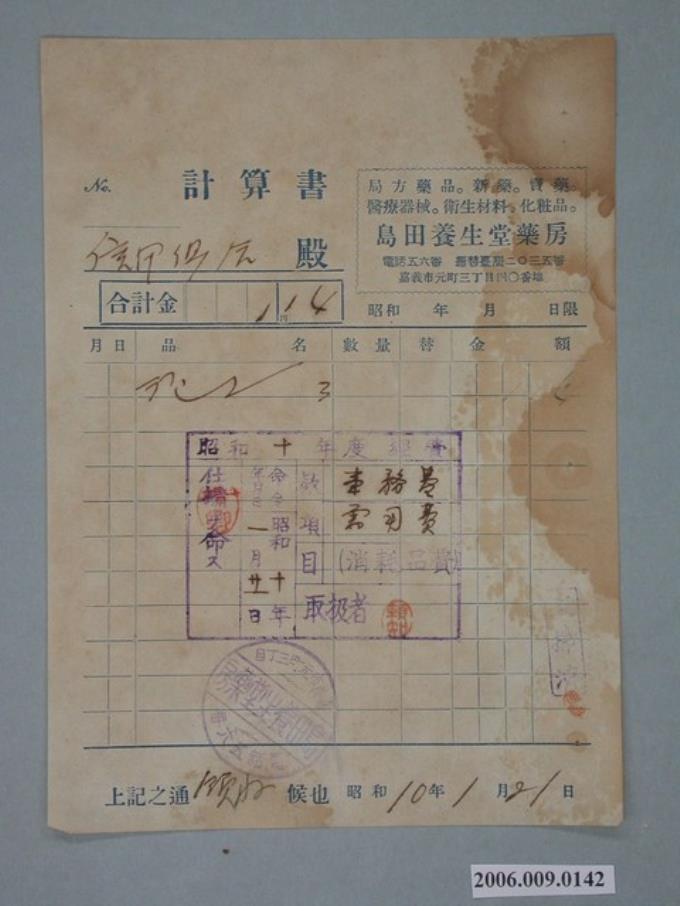 No.
計算書
局方藥品。新藥。賣藥。
醫療器械。衛生材料。化粧品。
島田養生堂藥房
電話五六番 振替臺灣二〇三五番
嘉義市元町三丁目四〇番地
殿
合計金 1 円 14
昭和 年 月 日限
月 日 品 名 數量 替 金 額
3
昭和十年度經費
款 事務費
項 需用費
目 (消耗品費)
取扱者
命令年月日 昭和十年一月廿一日
仕拂ヲ命ス
上記之通 候也 昭和 10 年 1 月 21 日
2006.009.0142